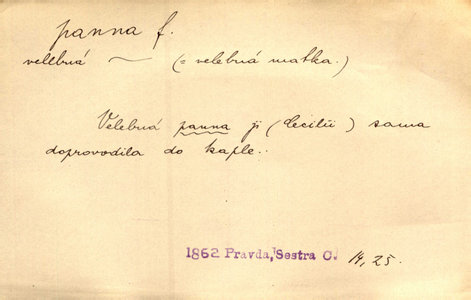 panna f.
velebná ~ (= velebná matka.)
Velebná panna ji (Cecilii) sama
doprovodila do kaple..
1862 Pravda, Sestra C. 14, 25.